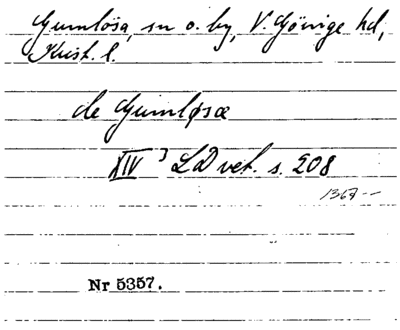 Gumlösa, sn o. by, V. Göinge hd,
Krist. l.
de Gumløsæ
XIV 3 LD vet. s. 208
1367--
Nr 5357.